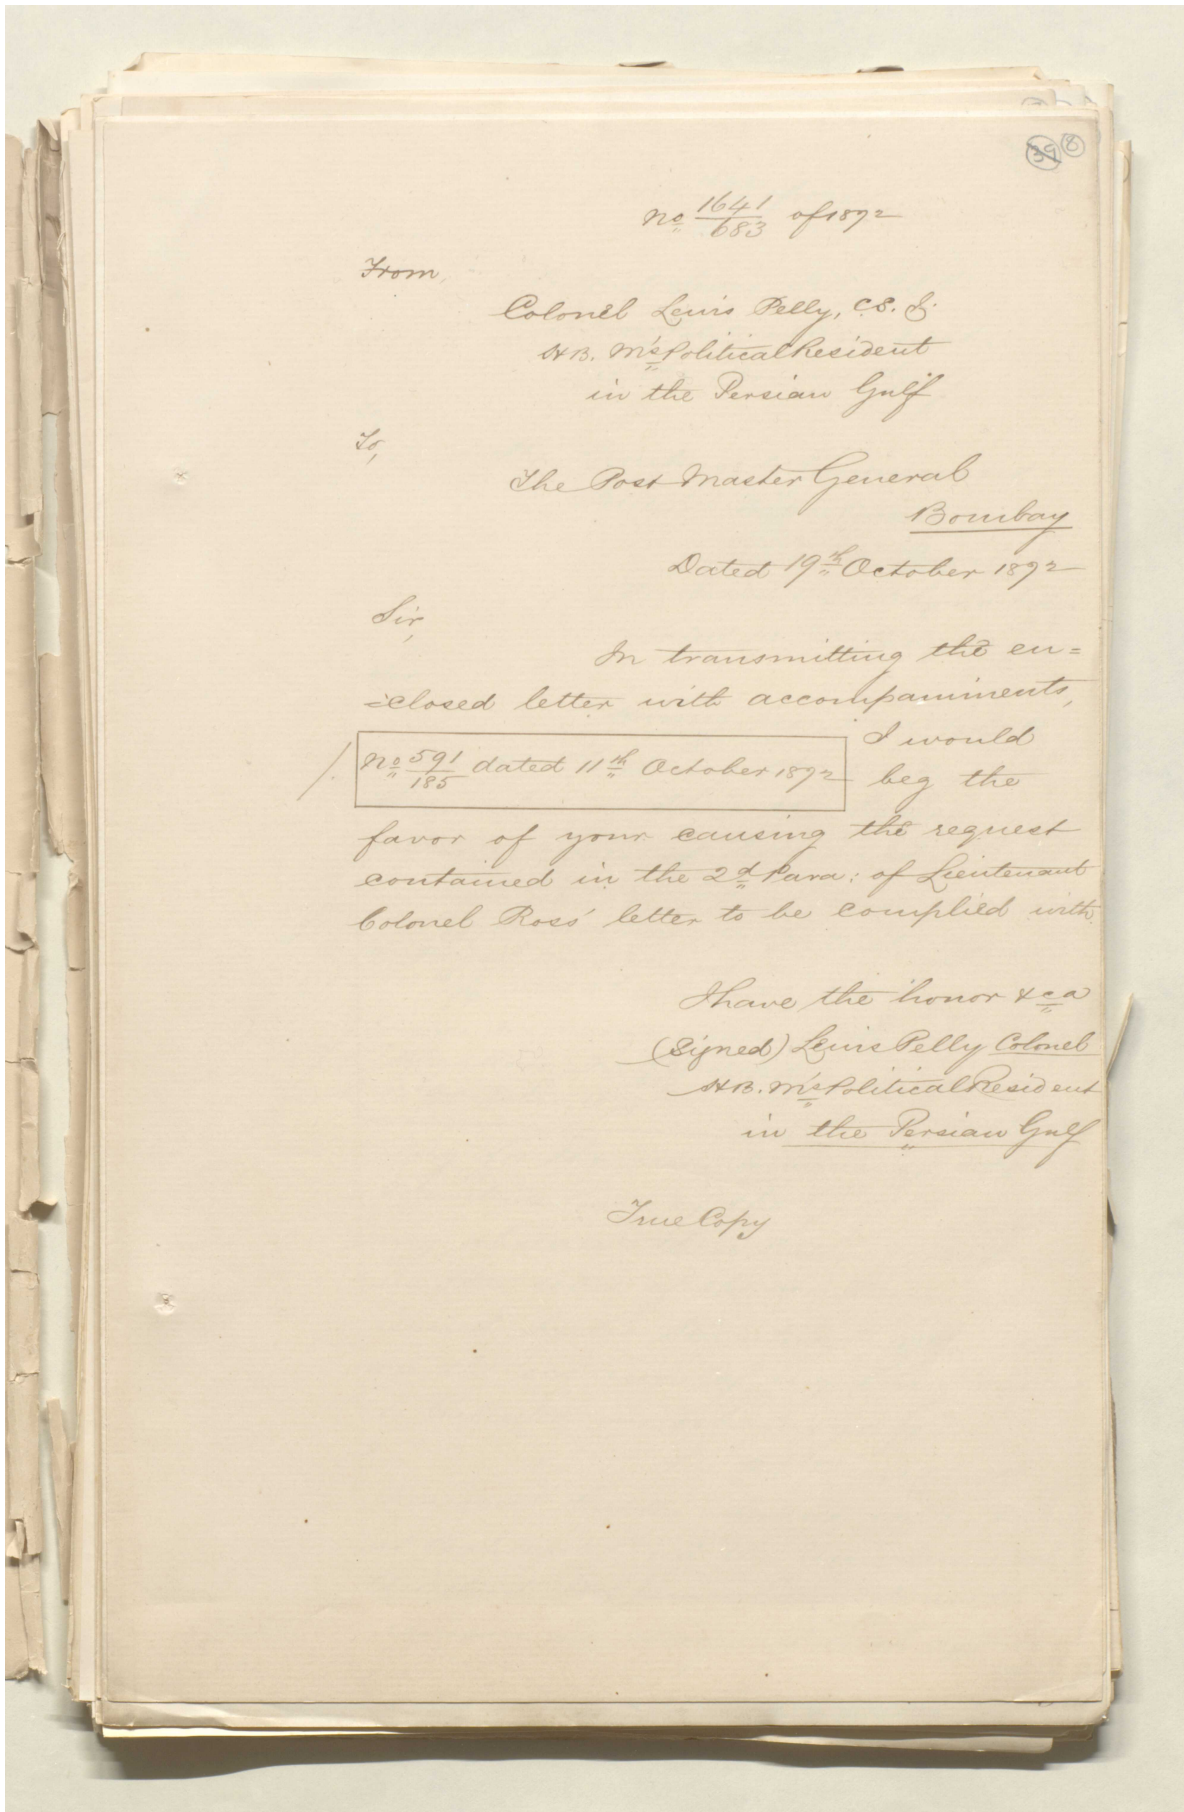 39 8
No 1641/683 of 1872
From,
Colonel Lewis Pelly, C.S.I.
H.B. M's Political Resident
in the Persian Gulf
To,
The Post Master General
Bombay
Dated 19th October 1872
Sir,
In transmitting the en=
=closed letter with accompaniments,
I would
/. No 591/185 dated 11th October 1872 beg the
favor of your causing the request
contained in the 2d Para: of Lieutenant
Colonel Ross' letter to be complied with
I have the honor &ca
(Signed) Lewis Pelly Colonel
H.B. M's Political Resident
in the Persian Gulf
True Copy